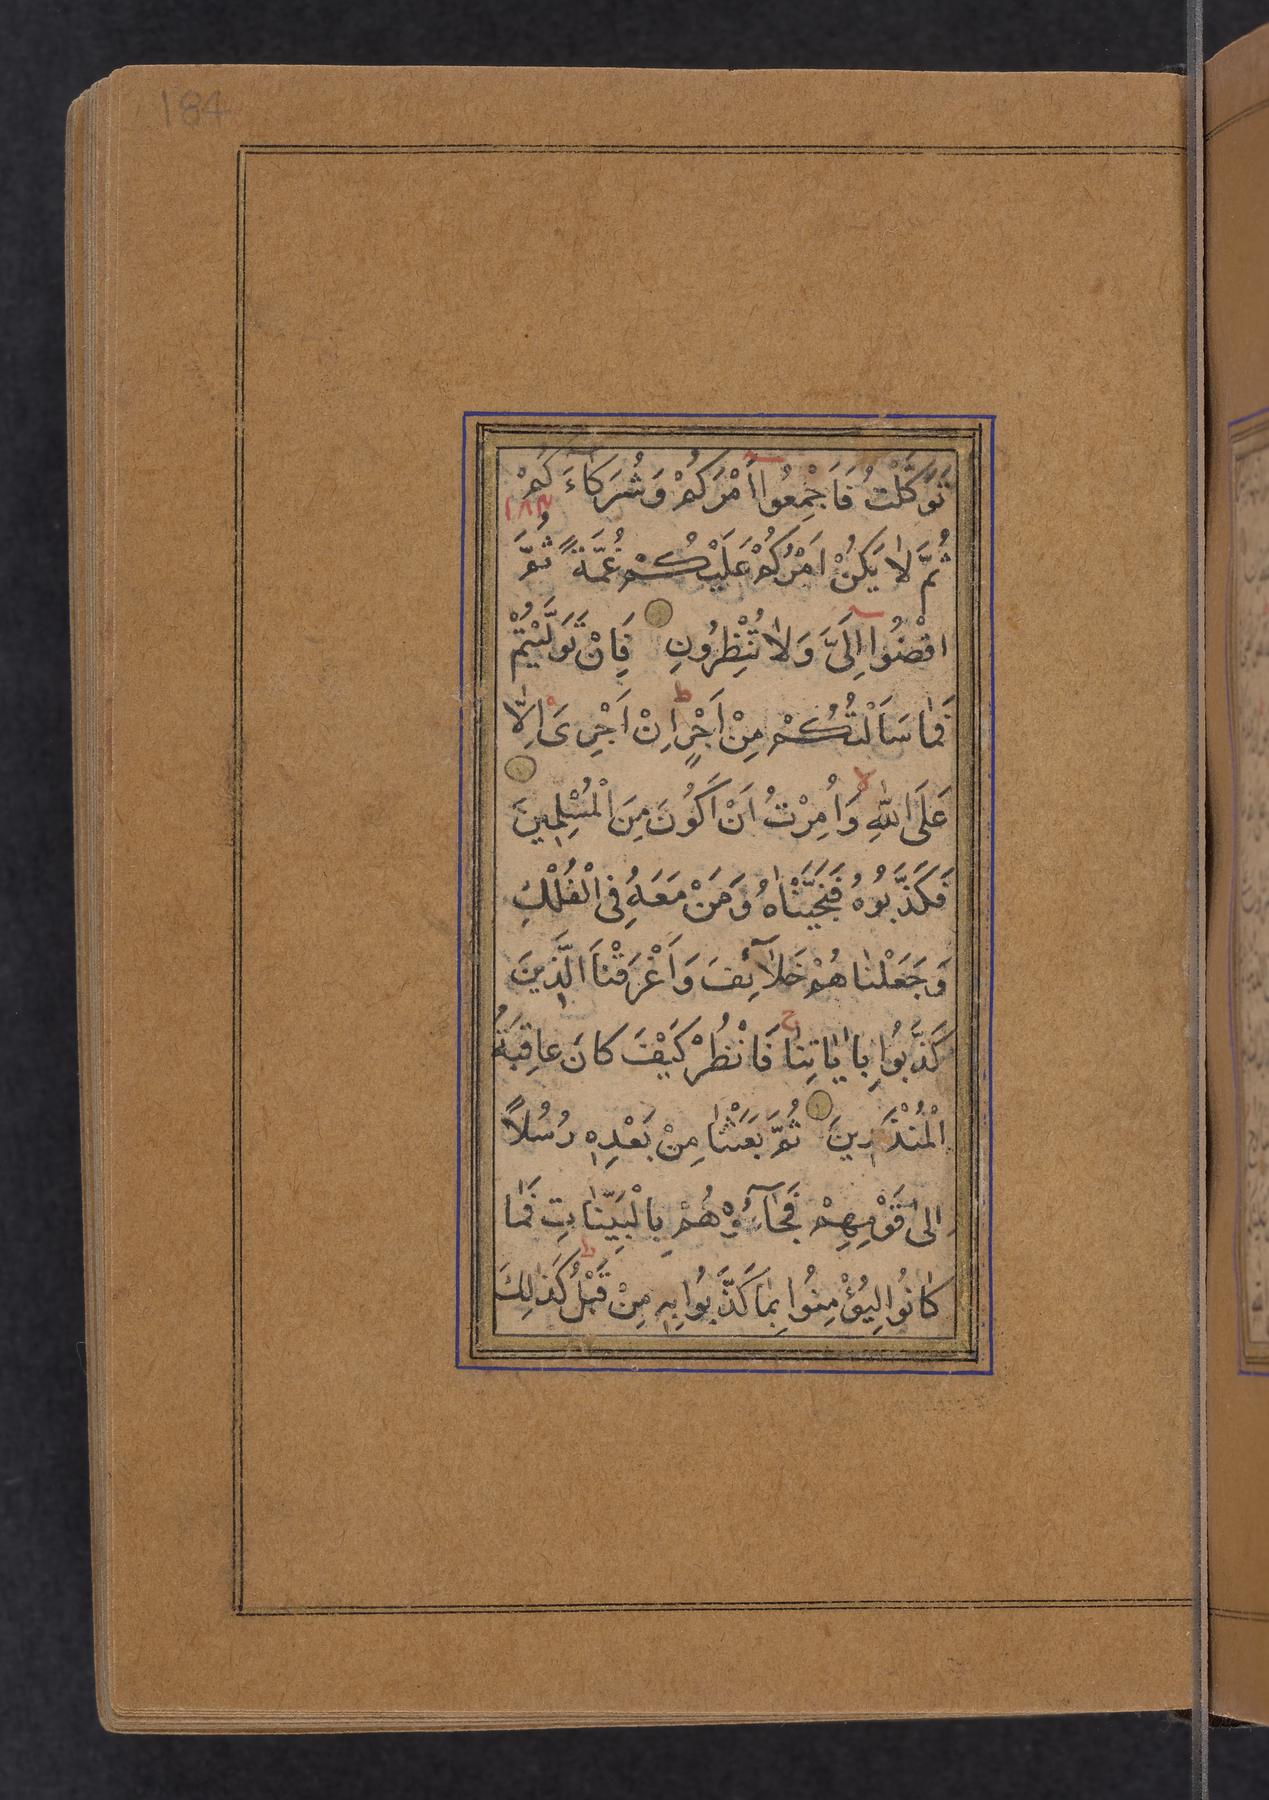 184
تَوَكَّلْتُ فَاَجْمِعُوا اَمْرَكُمْ وَشُرَكَاءَ كُمْ
ثُمَّ لَا يَكُنْ اَمْرُكُمْ عَلَيْكُمْ غُمَّةً ثُمَّ
اقْضُوا اِلَىَّ وَلَا تُنْظِرُونِ فَاِنْ تَوَلَّيْتُمْ
فَمَا سَاَلْتُكُمْ مِنْ اَجْرٍ اِنْ اَجْرِىَ اِلَّا
عَلَى اللّٰهِ وَاُمِرْتُ اَنْ اَكُونَ مِنَ الْمُسْلِمِينَ
فَكَذَّبُوهُ فَنَجَّيْنَاهُ وَمَنْ مَعَهُ فِى الْفُلْكِ
وَجَعَلْنَاهُمْ خَلَآئِفَ وَاَغْرَقْنَا الَّذِينَ
كَذَّبُوا بِاٰيَاتِنَا فَانْظُرْ كَيْفَ كَانَ عَاقِبَةُ
الْمُنْذَرِينَ ثُمَّ بَعَثْنَا مِنْ بَعْدِهٖ رُسُلًا
اِلٰى قَوْمِهِمْ فَجَآؤُهُمْ بِالْبَيِّنَاتِ فَمَا
كَانُوا لِيُؤْمِنُوا بِمَا كَذَّبُوا بِهٖ مِنْ قَبْلُ كَذٰلِكَ